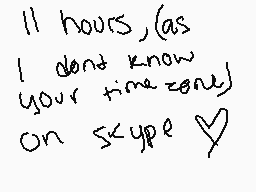 11 hours, (as
I dont know
your time zone)
on skype ♡